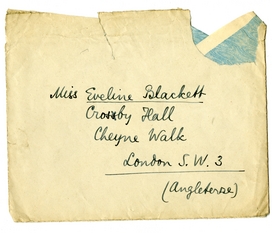 Miss Eveline Blackett
Crosby Hall
Cheyne Walk
London S.W.3
(Angleterre)